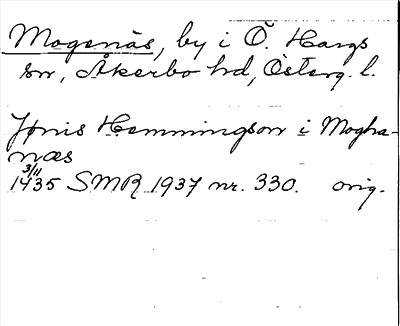 Mogenäs, by i Ö. Hargs
sn, Åkerbo hd, Österg. l.
Jönis Hemmingson i Mogha-
næs
3/11
1435 SMR 1937 nr. 330. orig.